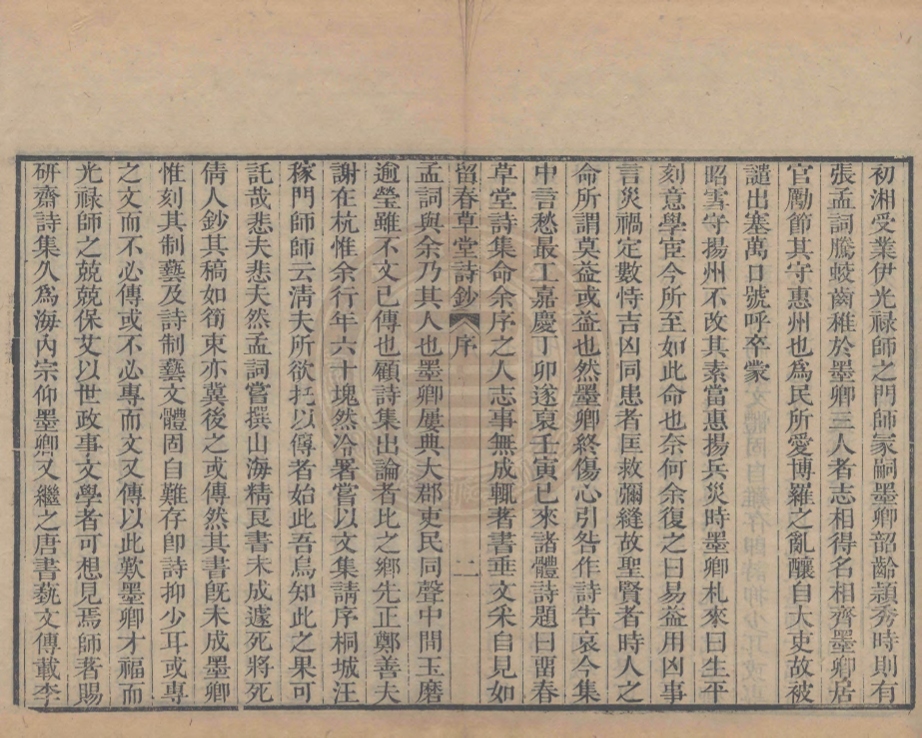 初湘受業伊光祿師之門師家嗣墨卿韶齡穎秀時則有
張孟詞騰蛟齒稚於墨卿三人者志相得名相齊墨卿居
官勵節其守惠州也爲民所愛博羅之亂釀自大吏故被
譴出塞萬口號呼卒蒙
昭雪守揚州不改其素當惠揚兵災時墨卿札來曰生平
刻意學宦今所至如此命也奈何余復之曰易益用凶事
言災禍定數恃吉凶同患者匡救彌縫故聖賢者時人之
命所謂莫益或益也然墨卿終傷心引咎作詩告哀今集
中言愁最工嘉慶丁卯遂裒壬寅已來諸體詩題曰畱春
草堂詩集命余序之人志事無成輒著書垂文采自見如
留春草堂詩鈔 序 二
孟詞與余乃其人也墨卿屢典大郡吏民同聲中間玉磨
逾瑩雖不文已傳也顧詩集出論者比之鄉先正鄭善夫
謝在杭惟余行年六十塊然冷署嘗以文集請序桐城汪
稼門師師云清夫所欲托以傳者始此吾烏知此之果可
託哉悲夫悲夫然孟詞嘗撰山海精良書未成遽死將死
倩人鈔其稿如筍束亦冀後之或傳然其書旣未成墨卿
惟刻其制藝及詩制藝文體固自難存卽詩抑少耳或專
之文而不必傳或不必專而文又傳以此歎墨卿才福而
光祿師之兢兢保艾以世政事文學者可想見焉師著賜
研齋詩集久爲海內宗仰墨卿又繼之唐書藝文傳載李